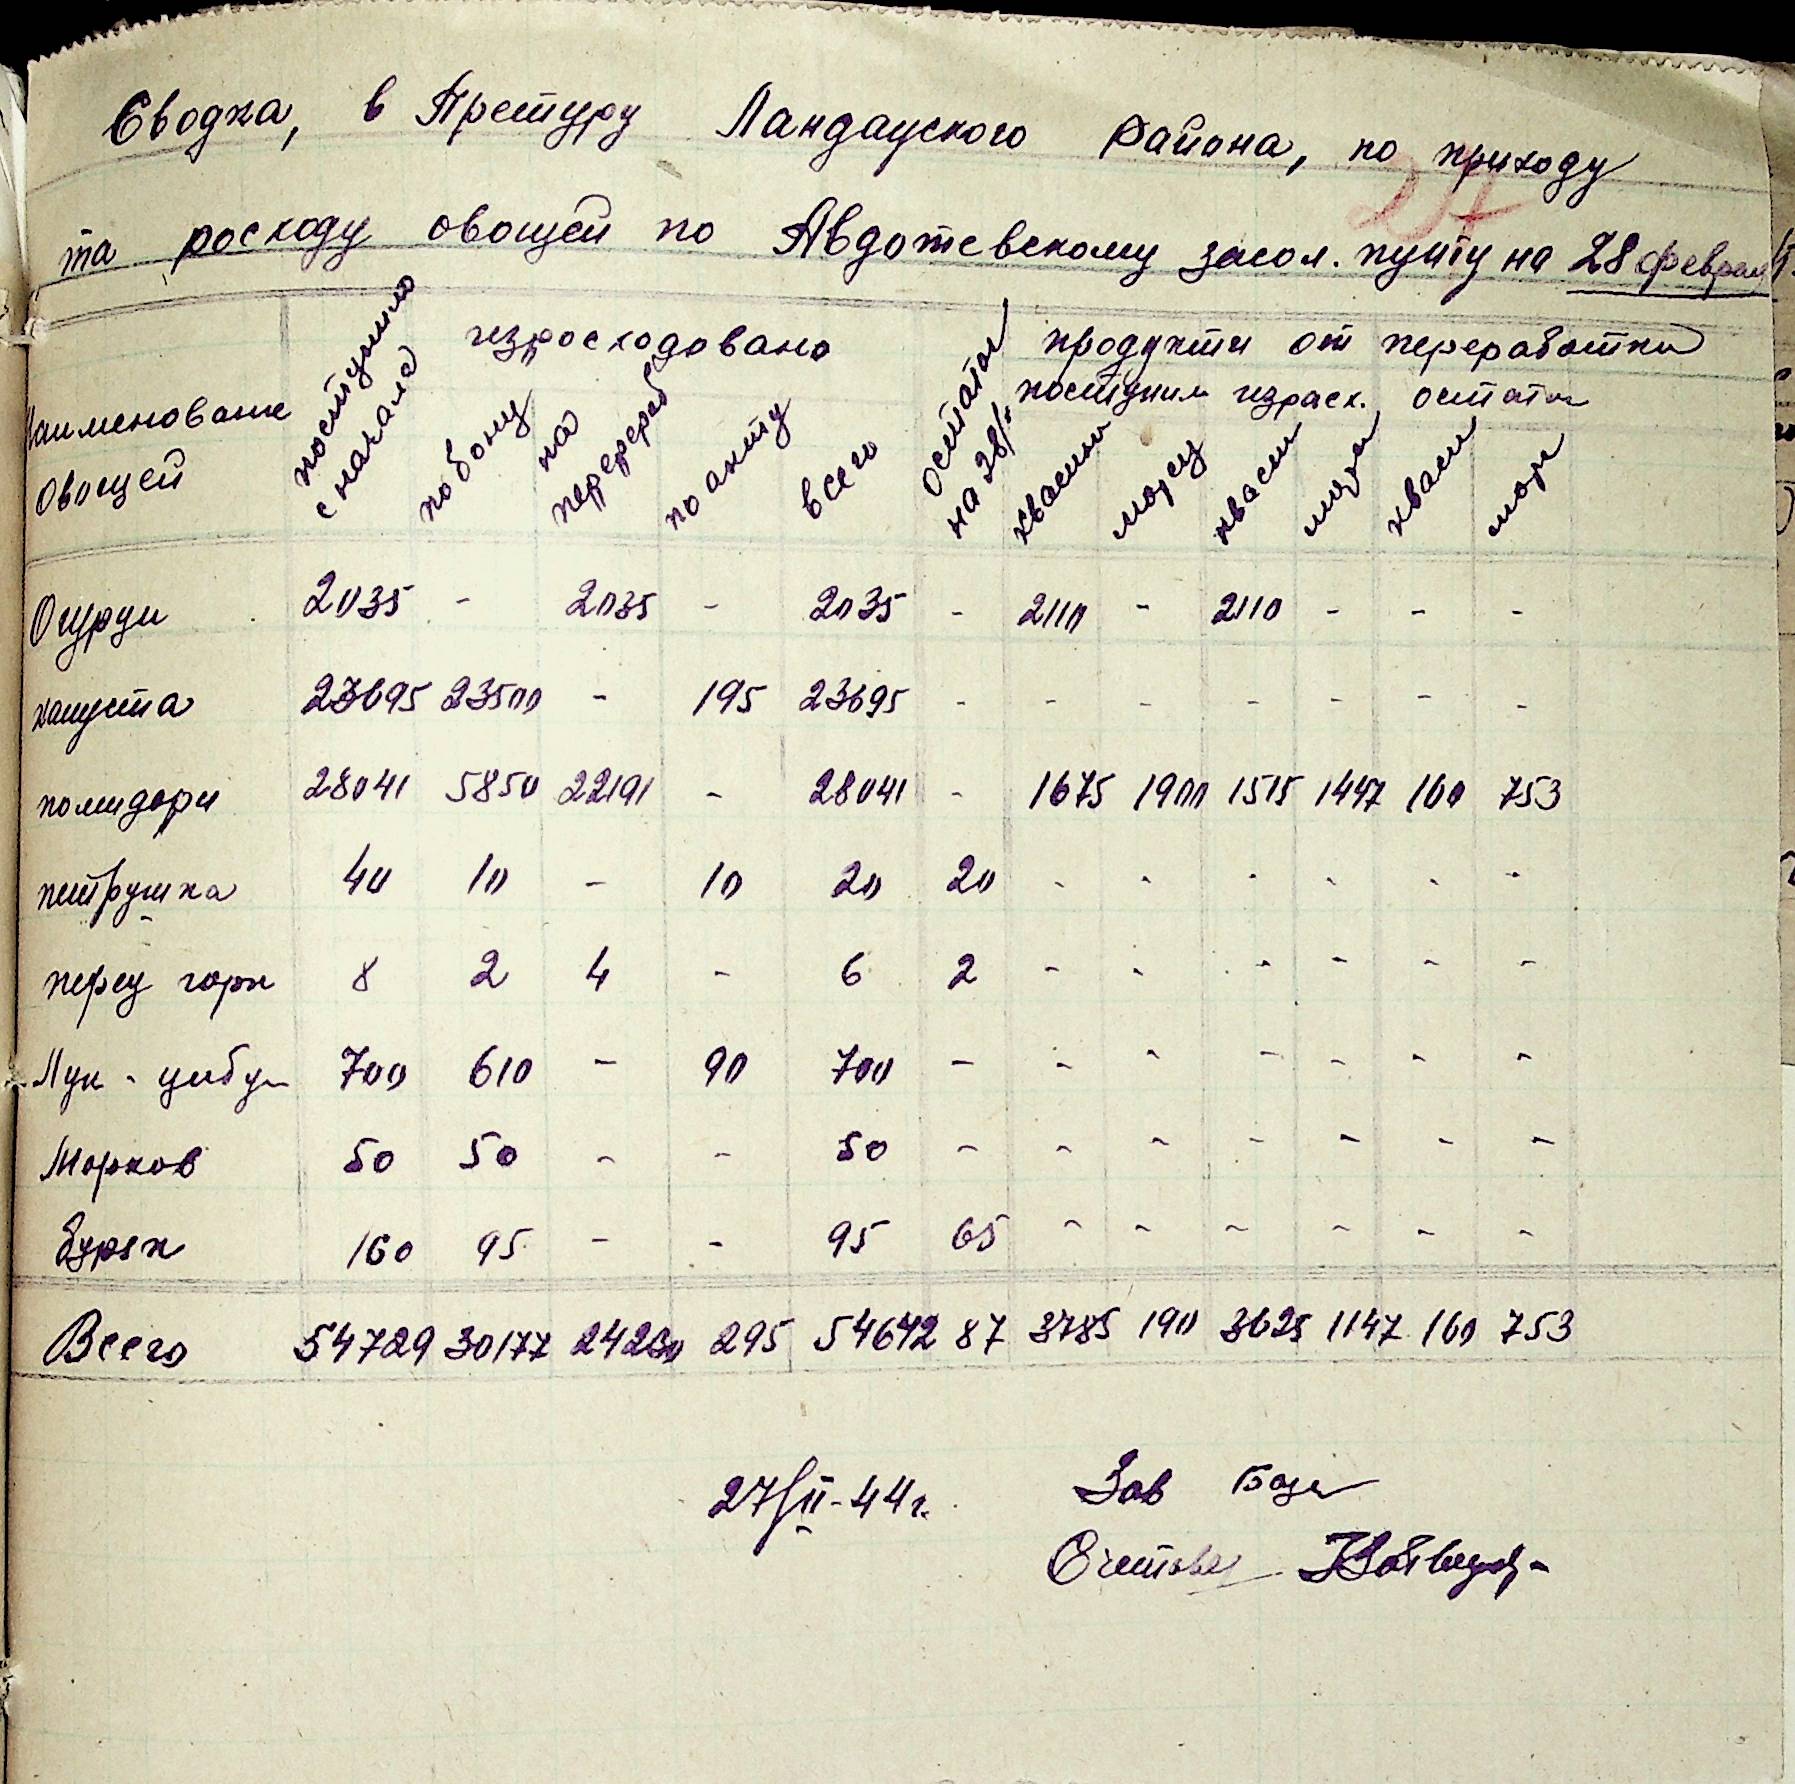 Сводка, в Претуру Ландауского района, по приходу
та росходу овощей по Авдотевскому засол. пункту на 28 феврал
24
Наименование овощей поступило с начала израсходовано остаток на 28/ продукти от переработки
поступил израсх. остаток
по бону на перераб по акту всего квасн морс квасн морс квасн морс
Огурци 2035 - 2035 - 2035 - 2110 - 2110 - - -
капуста 23695 23500 - 195 23695 - - - - - - -
помидори 28041 5850 22191 - 28041 - 1675 1900 1515 1447 160 753
петрушка 40 10 - 10 20 20 - - - - - -
перец горк 8 2 4 - 6 2 - - - - - -
Лук - цибул 700 610 - 90 700 - - - - - - -
Морков 50 50 - - 50 - - - - - - -
Буряк 160 95 - - 95 65 - - - - - -
Всего 54729 30177 24230 295 54642 87 3785 190 3625 1147 160 753
27/II-44г. Зав Бази
Счетовод